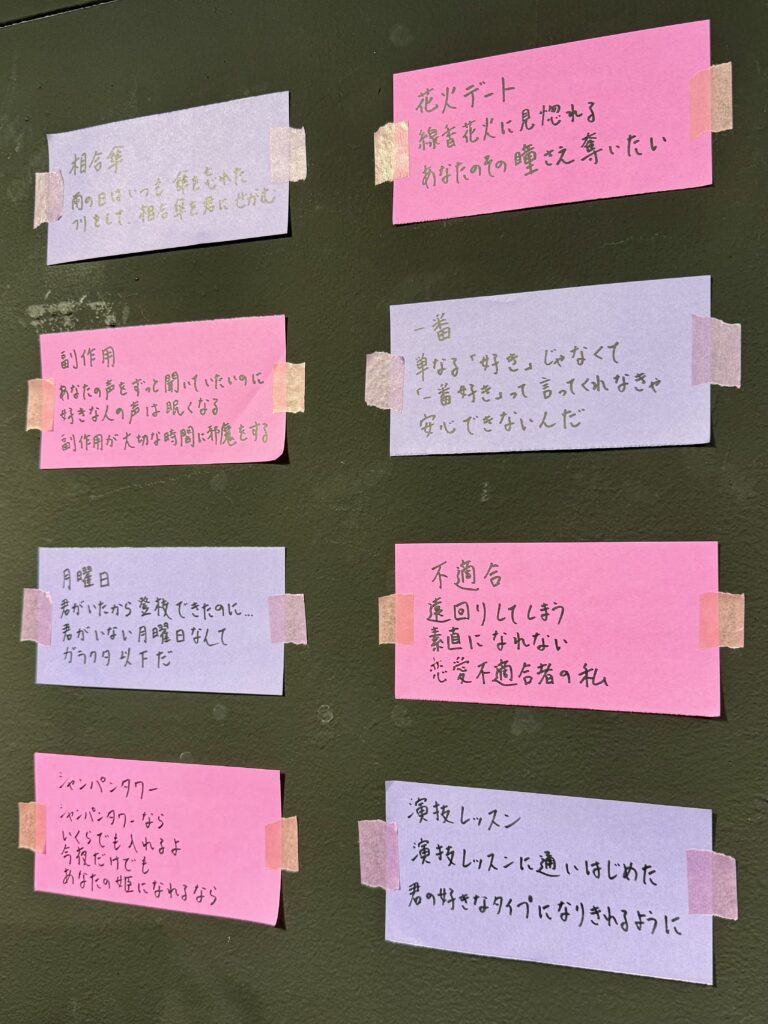 相合傘
雨の日はいつも 傘を忘れた
フリをして、相合傘を君にせがむ
花火デート
線香花火に見惚れる
あなたのその瞳さえ奪いたい
副作用
あなたの声をずっと聞いていたいのに
好きな人の声は眠くなる
副作用が大切な時間に邪魔をする
一番
単なる「好き」じゃなくて
「一番好き」って言ってくれなきゃ
安心できないんだ
月曜日
君がいたから登校できたのに…
君がいない月曜日なんて
ガラクタ以下だ
不適合
遠回りしてしまう
素直になれない
恋愛不適合者の私
シャンパンタワー
シャンパンタワーなら
いくらでも入れるよ
今夜だけでも
あなたの姫になれるなら
演技レッスン
演技レッスンに通いはじめた
君の好きなタイプになりきれるように